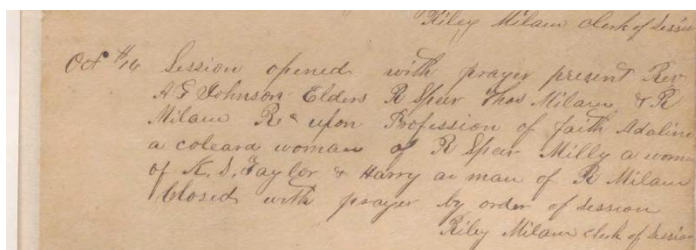 Riley Milam Clerk of Sessio
Oct #16 Session opened with prayer present Rev
A G Johnson Elders R Speer Thos Milam & R
Milam Rec upon Profession of faith Adaline
a coleard woman of R Speer Milly a woma
of K. S. Taylor & Harry a man of R Milam
Closed with prayer by order of session
Riley Milam clerk of session